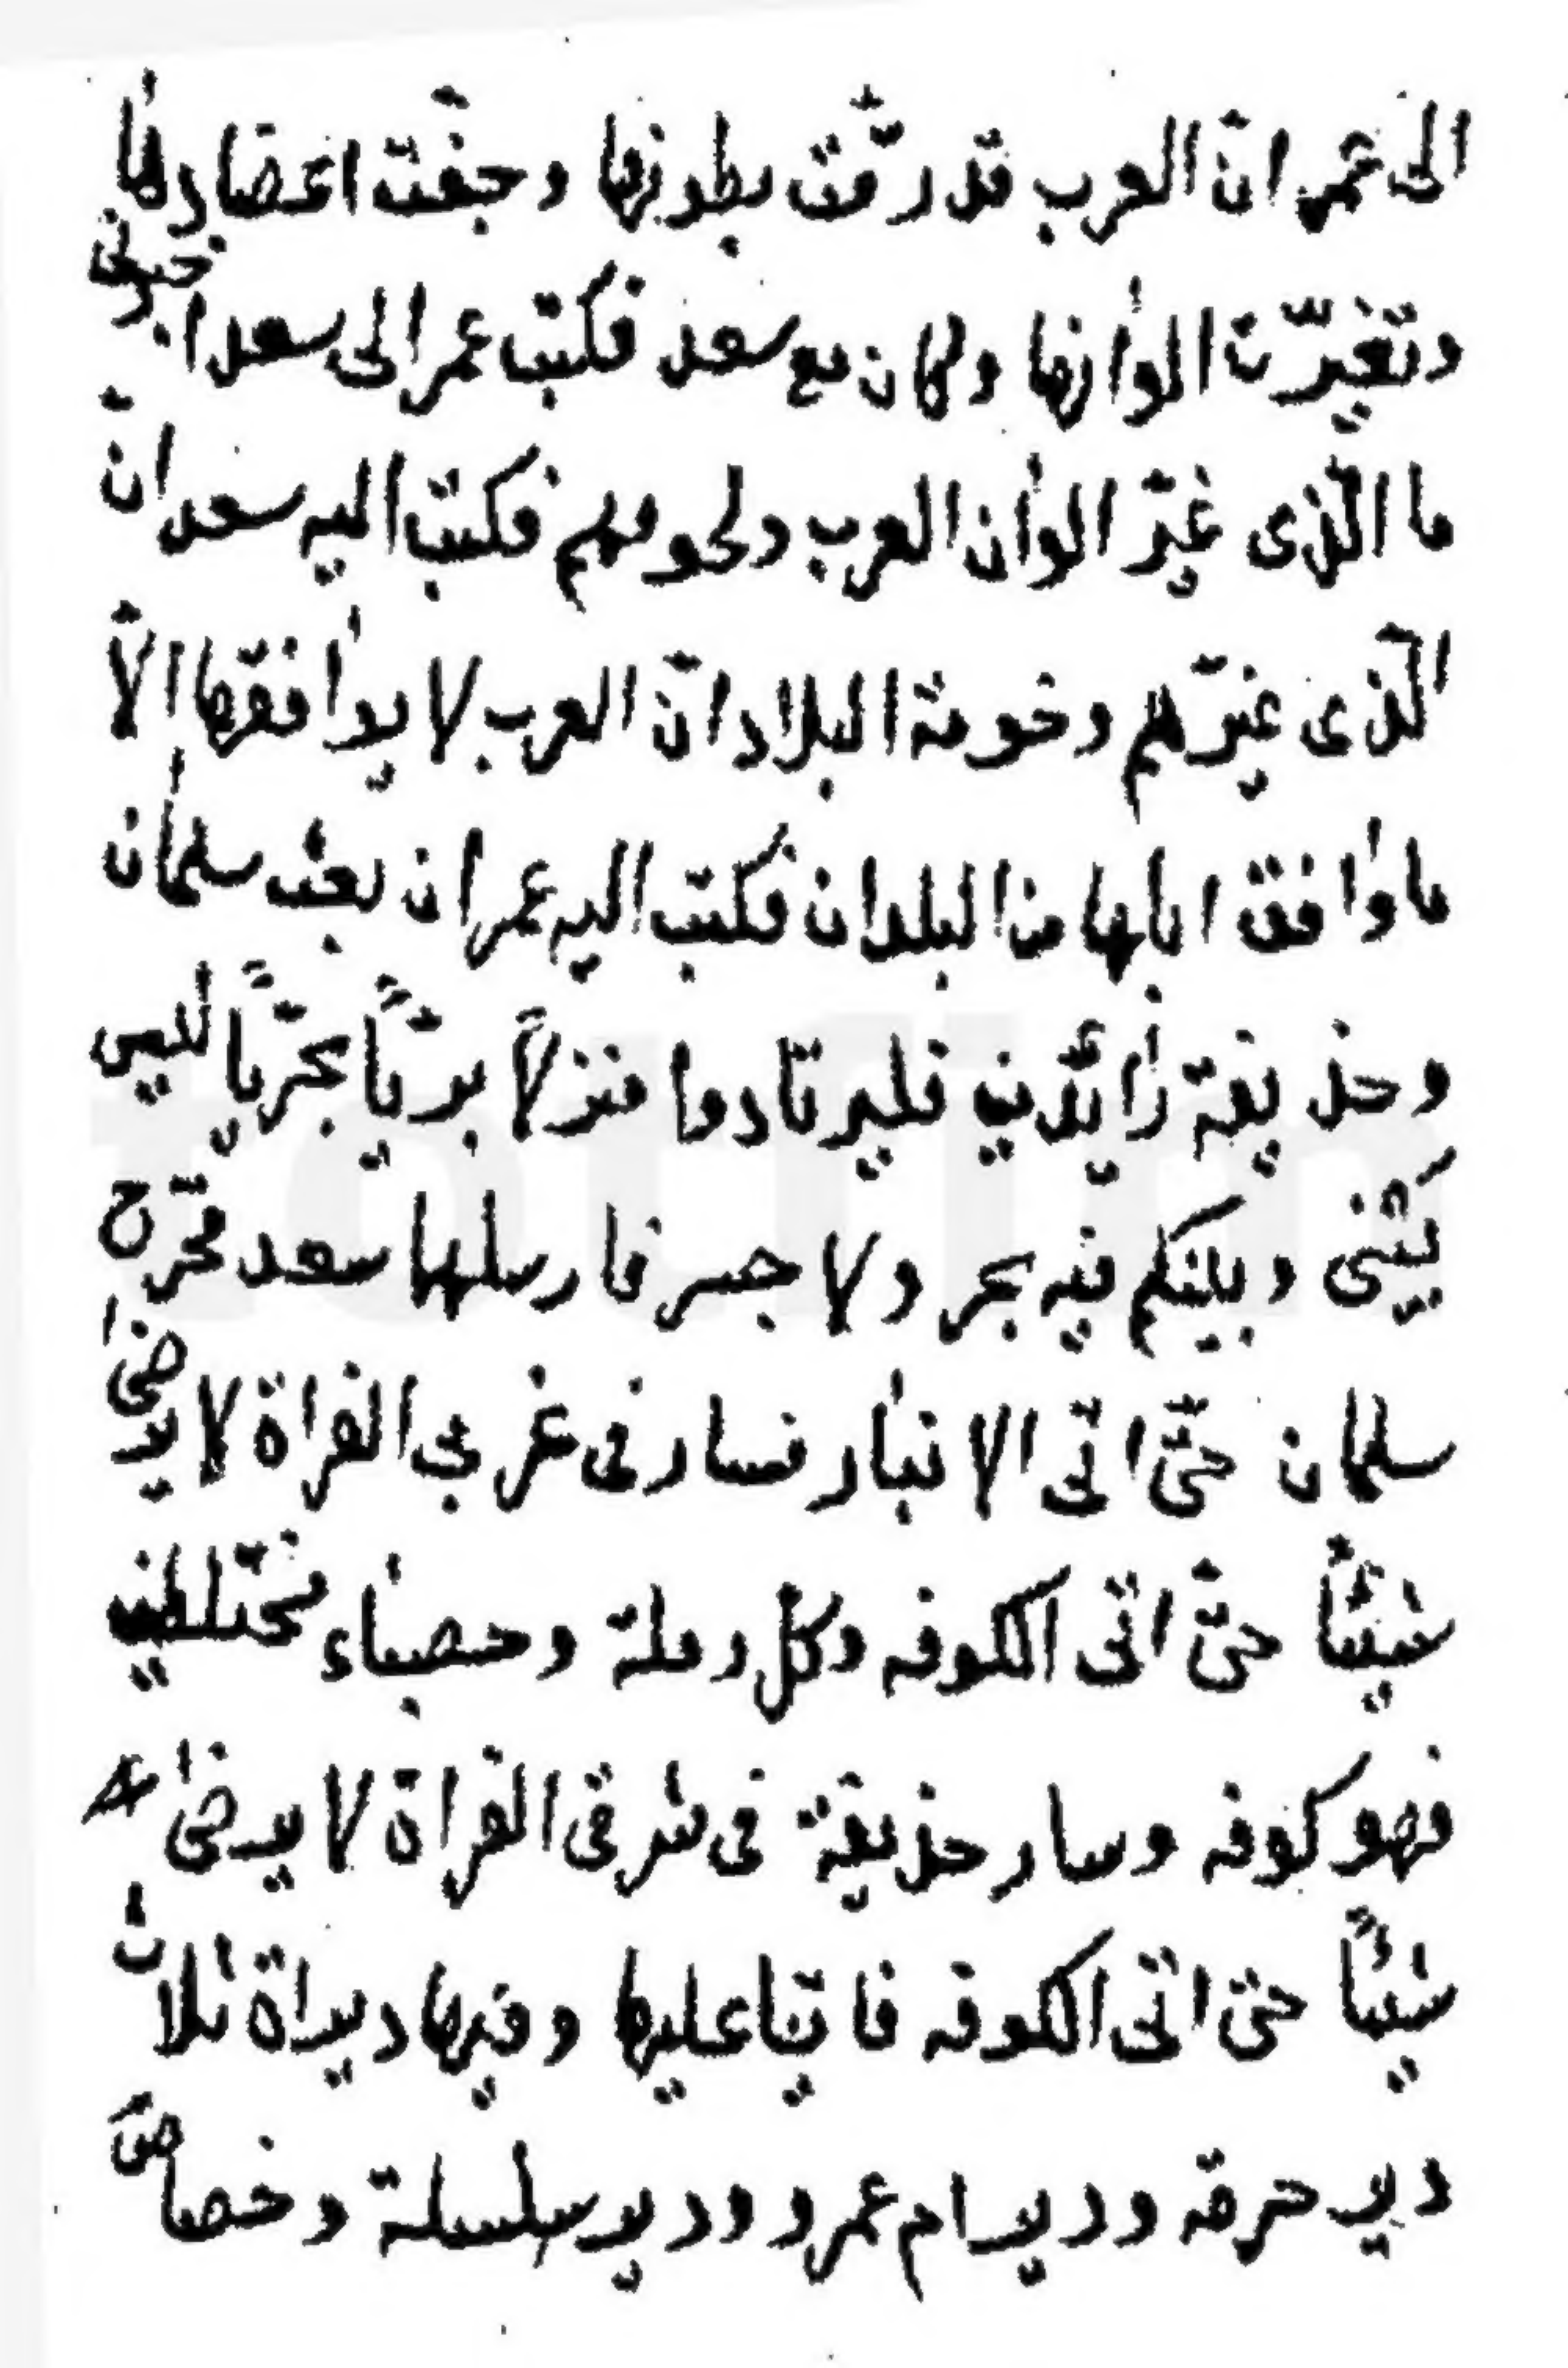 الى عمر انّ العرب قد رقّت بطونها وجفّت اعضادها
وتغيّرت الوانها وكان مع سعد فكتب عمر الى سعد اخبرنى
ما الّذى غيّر الوان العرب ولحومهم فكتب اليه سعد انّ
الّذى غيّرهم وخومة البلاد انّ العرب لا يوافقها الاّ
ما وافق ابلها من البلدان فكتب اليه عمر ان بعث سلمان
وحذيفة زائدين فليرتادوا منزلاً بريّاً بحريّاً لليس
بينى وبينكم فيه بحر ولا جسر فارسلها سعد فخرج
سلمان حتّى اتى الانبار فسار فى غربى الفراة لا يرضى
شيئاً حتّى اتى الكوفه وكل رملة وحصباء مختلطين
فهو كوفه وسار حذيفة فى شرقى الفراة لا يرضى
شيئاً حتى اتى الكوفه فاتيا عليها وفيها ديراة ثلاث
دير حرقه ودير ام عمرو ودير سلسلة وخصاص